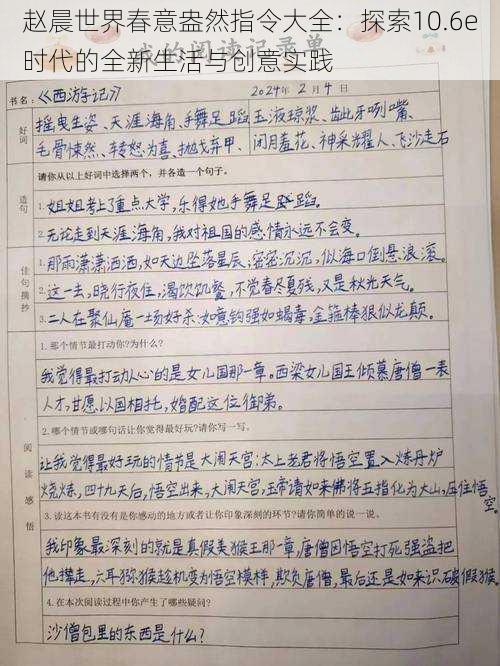 赵晨世界春意盎然指令大全：探索10.6e
时代的全新生活与创意实践
我的阅读记录单
书名：《西游记》 2024年2月4
好词
摇曳生姿、天涯海角、手舞足蹈 玉液琼浆、齿龇牙咧嘴、
毛骨悚然、转怒为喜、抛戈弃甲、闭月羞花、神采光耀人、飞沙走石
请你从以上好词中选择两个，并各造一个句子。
造句
1.姐姐考上了重点大学，乐得她手舞足蹈。
2.无论走到天涯海角，我对祖国的感情永远不会变。
佳句摘抄
1.那雨潇潇洒洒，如天边坠落星辰；密密沉沉，似海口倒悬浪滚。
2.这一去，晓行夜住，渴饮饥餐，不觉春尽夏残，又是秋光天气。
3.二人在聚仙庵一场好杀：如意钩强如蝎毒，金箍棒狠似龙颠。
阅读感悟
1.那个情节最打动你?为什么?
我觉得最打动人心的是女儿国那一章。西梁女儿国王倾慕唐僧一表
人才，甘愿以国相托，婚配这位御弟。
2.哪个情节或哪句话让你觉得最好玩?请你写一写。
让我觉得最好玩的情节是大闹天宫：太上老君将悟空置入炼丹炉
烧炼，四十九天后，悟空出来，大闹天宫，玉帝请如来佛将五指化为大山，压住悟空。
3.读这本书有没有是你感动的地方或者让你印象深刻的环节?请你简单的说一说。
我印象最深刻的就是真假美猴王那一章，唐僧因悟空打死强盗把
他撵走，六耳猕猴趁机变为悟空模样，欺负唐僧，最后还是如来识破假猴。
4.在本次阅读过程中你产生了哪些疑问?
沙僧包里的东西是什么?